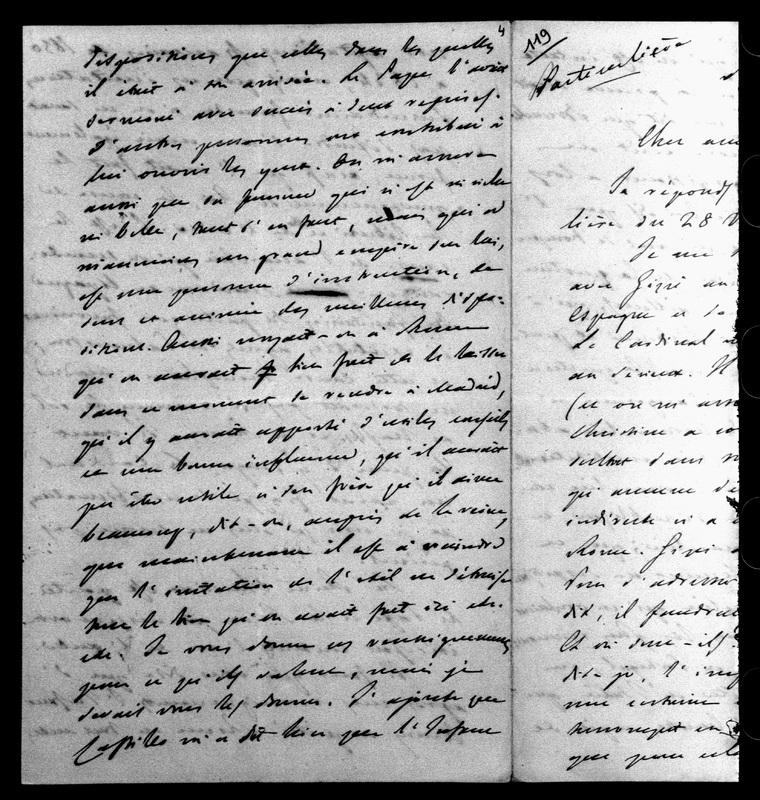 4
dispositions que celles dans lesquelles
il était à son arrivée. Le Pape l'avait
sermoné avec succès à deux reprises.
D'autres personnes ont contribué à
lui ouvrir les yeux. On m'assure
aussi que sa femme qui n'est ni riche
ni belle, tant s'en faut, mais qui a
néanmoins un grand empire sur lui,
est une personne d'instruction, de
sens et animée des meilleures dispo-
sitions. Aussi croyait-on à Rome
qu'on aurait bien fait de le laisser
dans ce moment se rendre à Madrid,
qu'il y aurait apporté d'utiles conseils
et une bonne influence, qu'il aurait
pu être utile à son frère qu'il aime
beaucoup, dit-on, auprès de la reine,
que maintenant il est à craindre
que l'irritation de l'exil ne détruise
tout le bien qu'on avait fait ici etc.
etc. Je vous donne ces renseignements
pour ce qu'ils valent, mais je
devais vous les donner. J'ajoute que
Castillo m'a dit hier que l'Infant
119
Particulière
Cher am
Je répond
lière du 28
Je me
avec Gizzi
Espagne et
Le Cardinal
au sérieux.
Christine a
dans
qu'aucune
indirecte n'a
Rome. Gizzi
d'adresser
dit, il faudrait
Et où donc-ils
dis-je, l'
une certaine
que pour cela